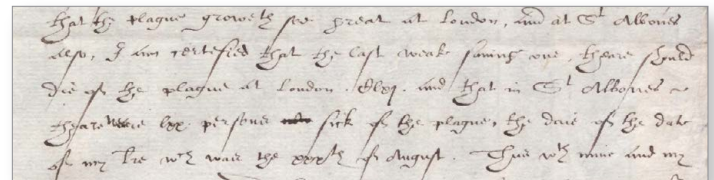 that the plague groweth soe great at London, and at St Albones
also, I am certefied that the last weake saving one, theare should
die of the plague at London . dlxj. and that in St Albones ~
theare weere lxx persons sick of the plague, the daie of the date
of my lre wch was the xxxth of August . Thus wth mine and my